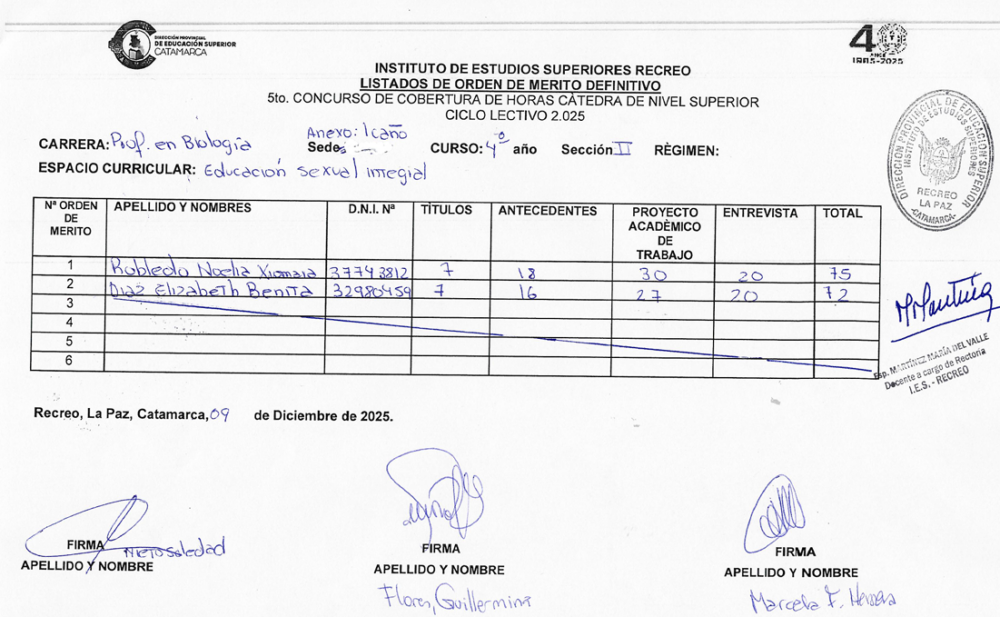 DIRECCIÓN PROVINCIAL
DE EDUCACIÓN SUPERIOR
CATAMARCA
40
AÑOS
1985-2025
INSTITUTO DE ESTUDIOS SUPERIORES RECREO
LISTADOS DE ORDEN DE MERITO DEFINITIVO
5to. CONCURSO DE COBERTURA DE HORAS CÁTEDRA DE NIVEL SUPERIOR
CICLO LECTIVO 2.025
CARRERA: Prof. en Biología Anexo: Icaño Sede: CURSO: 4º año Sección II RÈGIMEN:
ESPACIO CURRICULAR: Educación sexual integral
DIRECCIÓN PROVINCIAL DE EDUCACIÓN SUPERIOR
INSTITUTO DE ESTUDIOS SUPERIORES
RECREO
LA PAZ
-CATAMARCA-
Nª ORDEN DE MERITO APELLIDO Y NOMBRES D.N.I. Nª TÌTULOS ANTECEDENTES PROYECTO ACADÈMICO DE TRABAJO ENTREVISTA TOTAL
1 Robledo Noelia Xiomara 37743812 7 18 30 20 75
2 Diaz Elizabeth Benita 32980459 7 16 27 20 72
3
4
5
6
Esp. MARTÍNEZ MARÍA DEL VALLE
Docente a cargo de Rectoría
I.E.S. - RECREO
Recreo, La Paz, Catamarca, 09 de Diciembre de 2025.
FIRMA Nieto Soledad
APELLIDO Y NOMBRE
FIRMA
APELLIDO Y NOMBRE
Flores, Guillermina
FIRMA
APELLIDO Y NOMBRE
Marcela F. Herrera